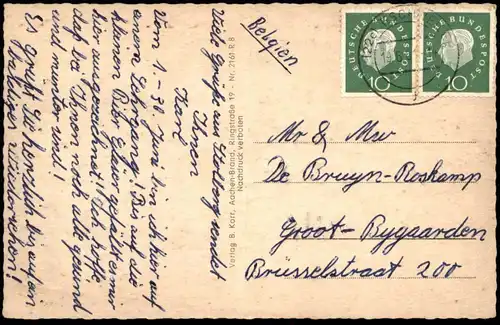 Viele Grüße aus Stolberg sendet
Ihnen
Karl
Vom 1.-30. Juni bin ich hier auf
einem Lehrgang! Bis auf die
kleinen Eifel gefällt es mir
hier ausgezeichnet! Ich hoffe
daß bei Ihnen noch alle gesund
und munter sind!
Es grüßt Sie herzlich bis auf ein
baldiges Wiedersehen!
Verlag B. Korr, Aachen-Brand, Ringstraße 19 - Nr. 2161 R 8
Nachdruck verboten
Belgien
DEUTSCHE BUNDESPOST
10
DEUTSCHE BUNDESPOST
10
Mr & Mev
De Bruyn-Roskamp
Groot-Bygaarden
Brüsselstraat 200